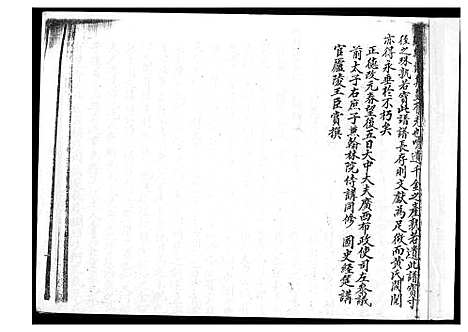 遺千金之產孰若遺此譜寶予
後之珠孰若寶此譜譜長存則文獻為足徵而黃氏閥閱
亦得永垂於不朽矣
正德改元春望後五日大中大夫廣西布政使司左參議
前太子右庶子兼翰林院侍講同修 國史經筵講
官廬陵王臣實撰